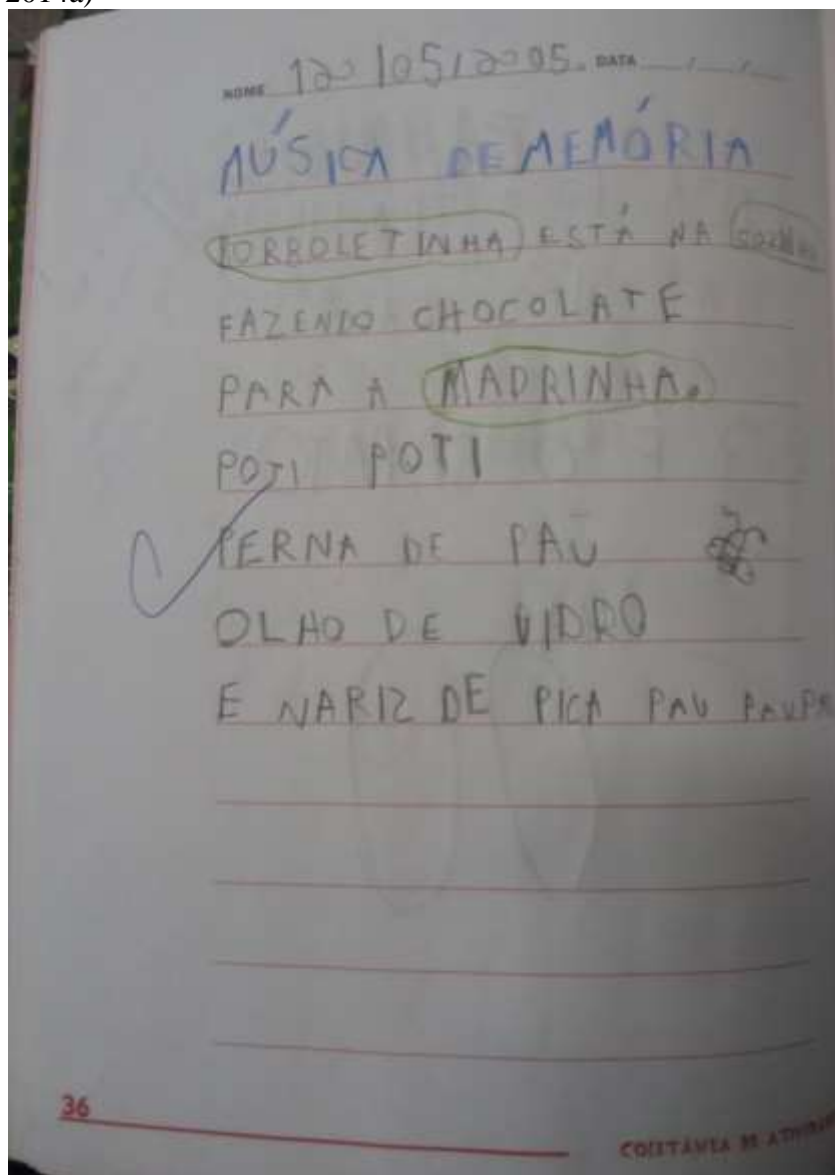 2014a)
NOME 12/05/2005. DATA / /
MÚSICA DE MEMÓRIA
BORBOLETINHA ESTÁ NA COZINHA
FAZENDO CHOCOLATE
PARA A MADRINHA.
POTI POTI
PERNA DE PAU
OLHO DE VIDRO
E NARIZ DE PICA PAU PAU PA
36
COLETÂNEA DE ATIVID